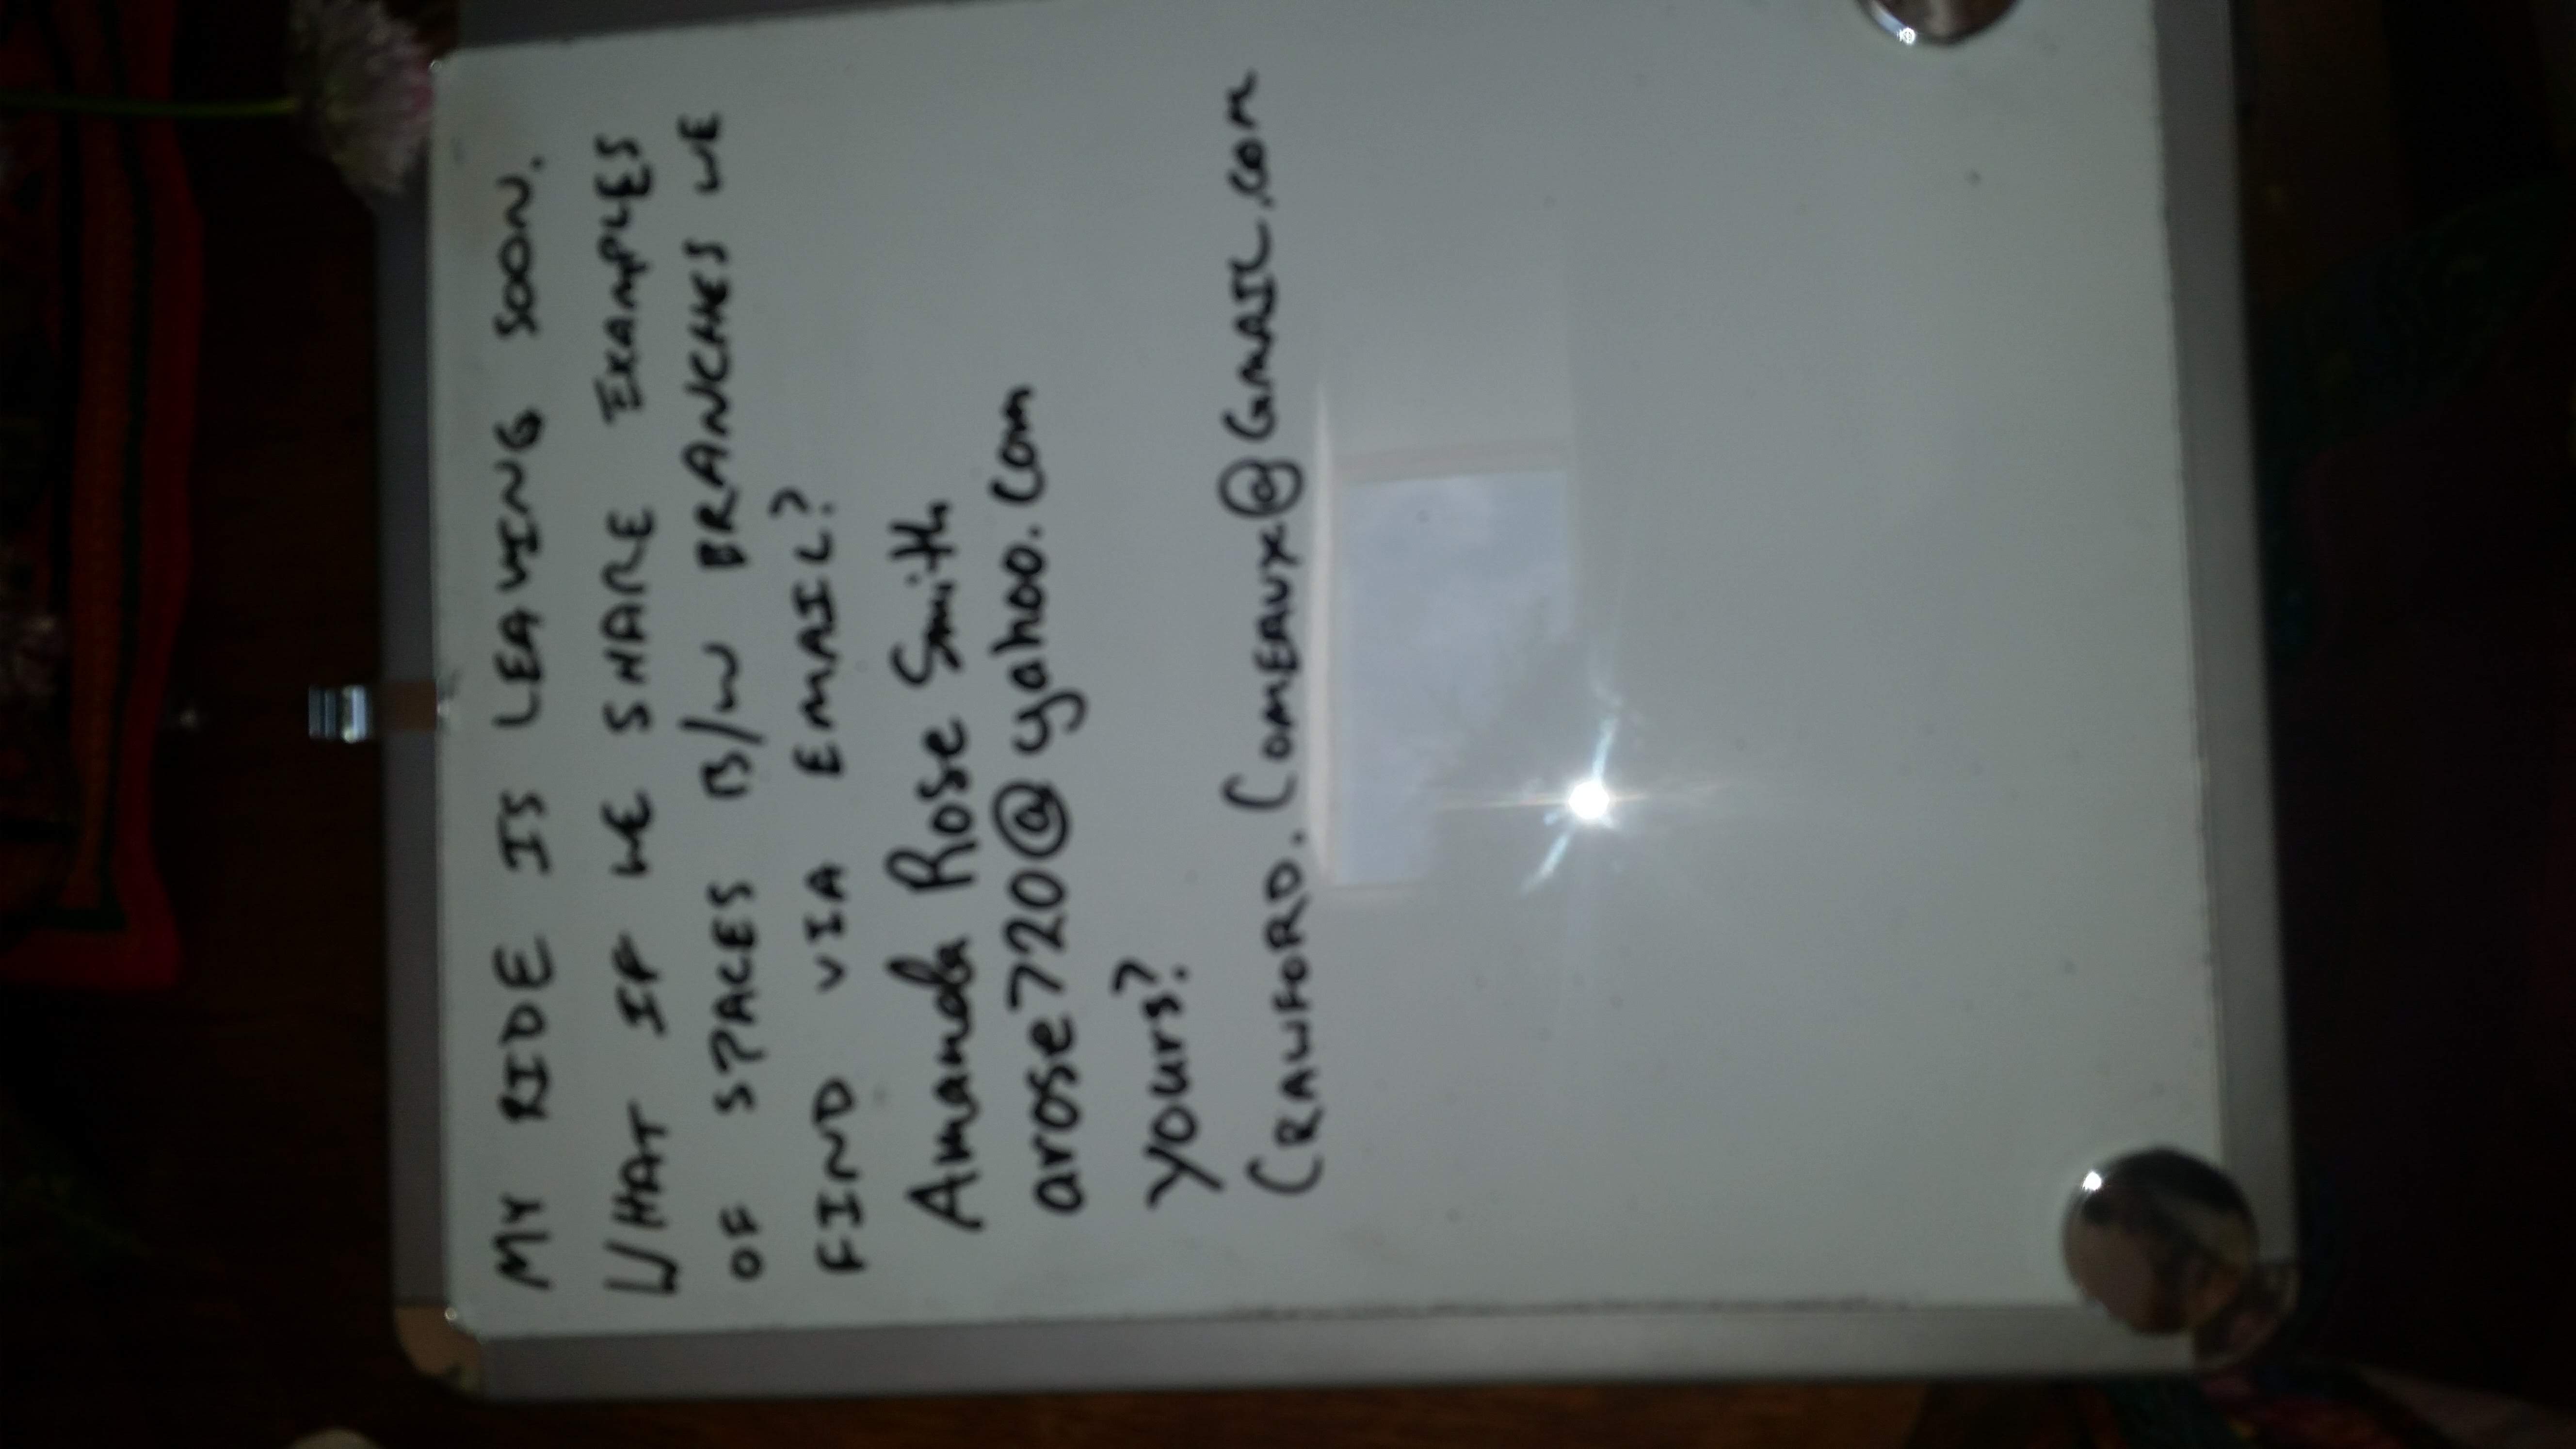 MY RIDE IS LEAVING SOON.
WHAT IF WE SHARE EXAMPLES
OF SPACES B/W BRANCHES WE
FIND VIA EMAIL?
Amanda Rose Smith
arose720@yahoo.com
yours?
CRAWFORD.COMEAUX@GMAIL.COM